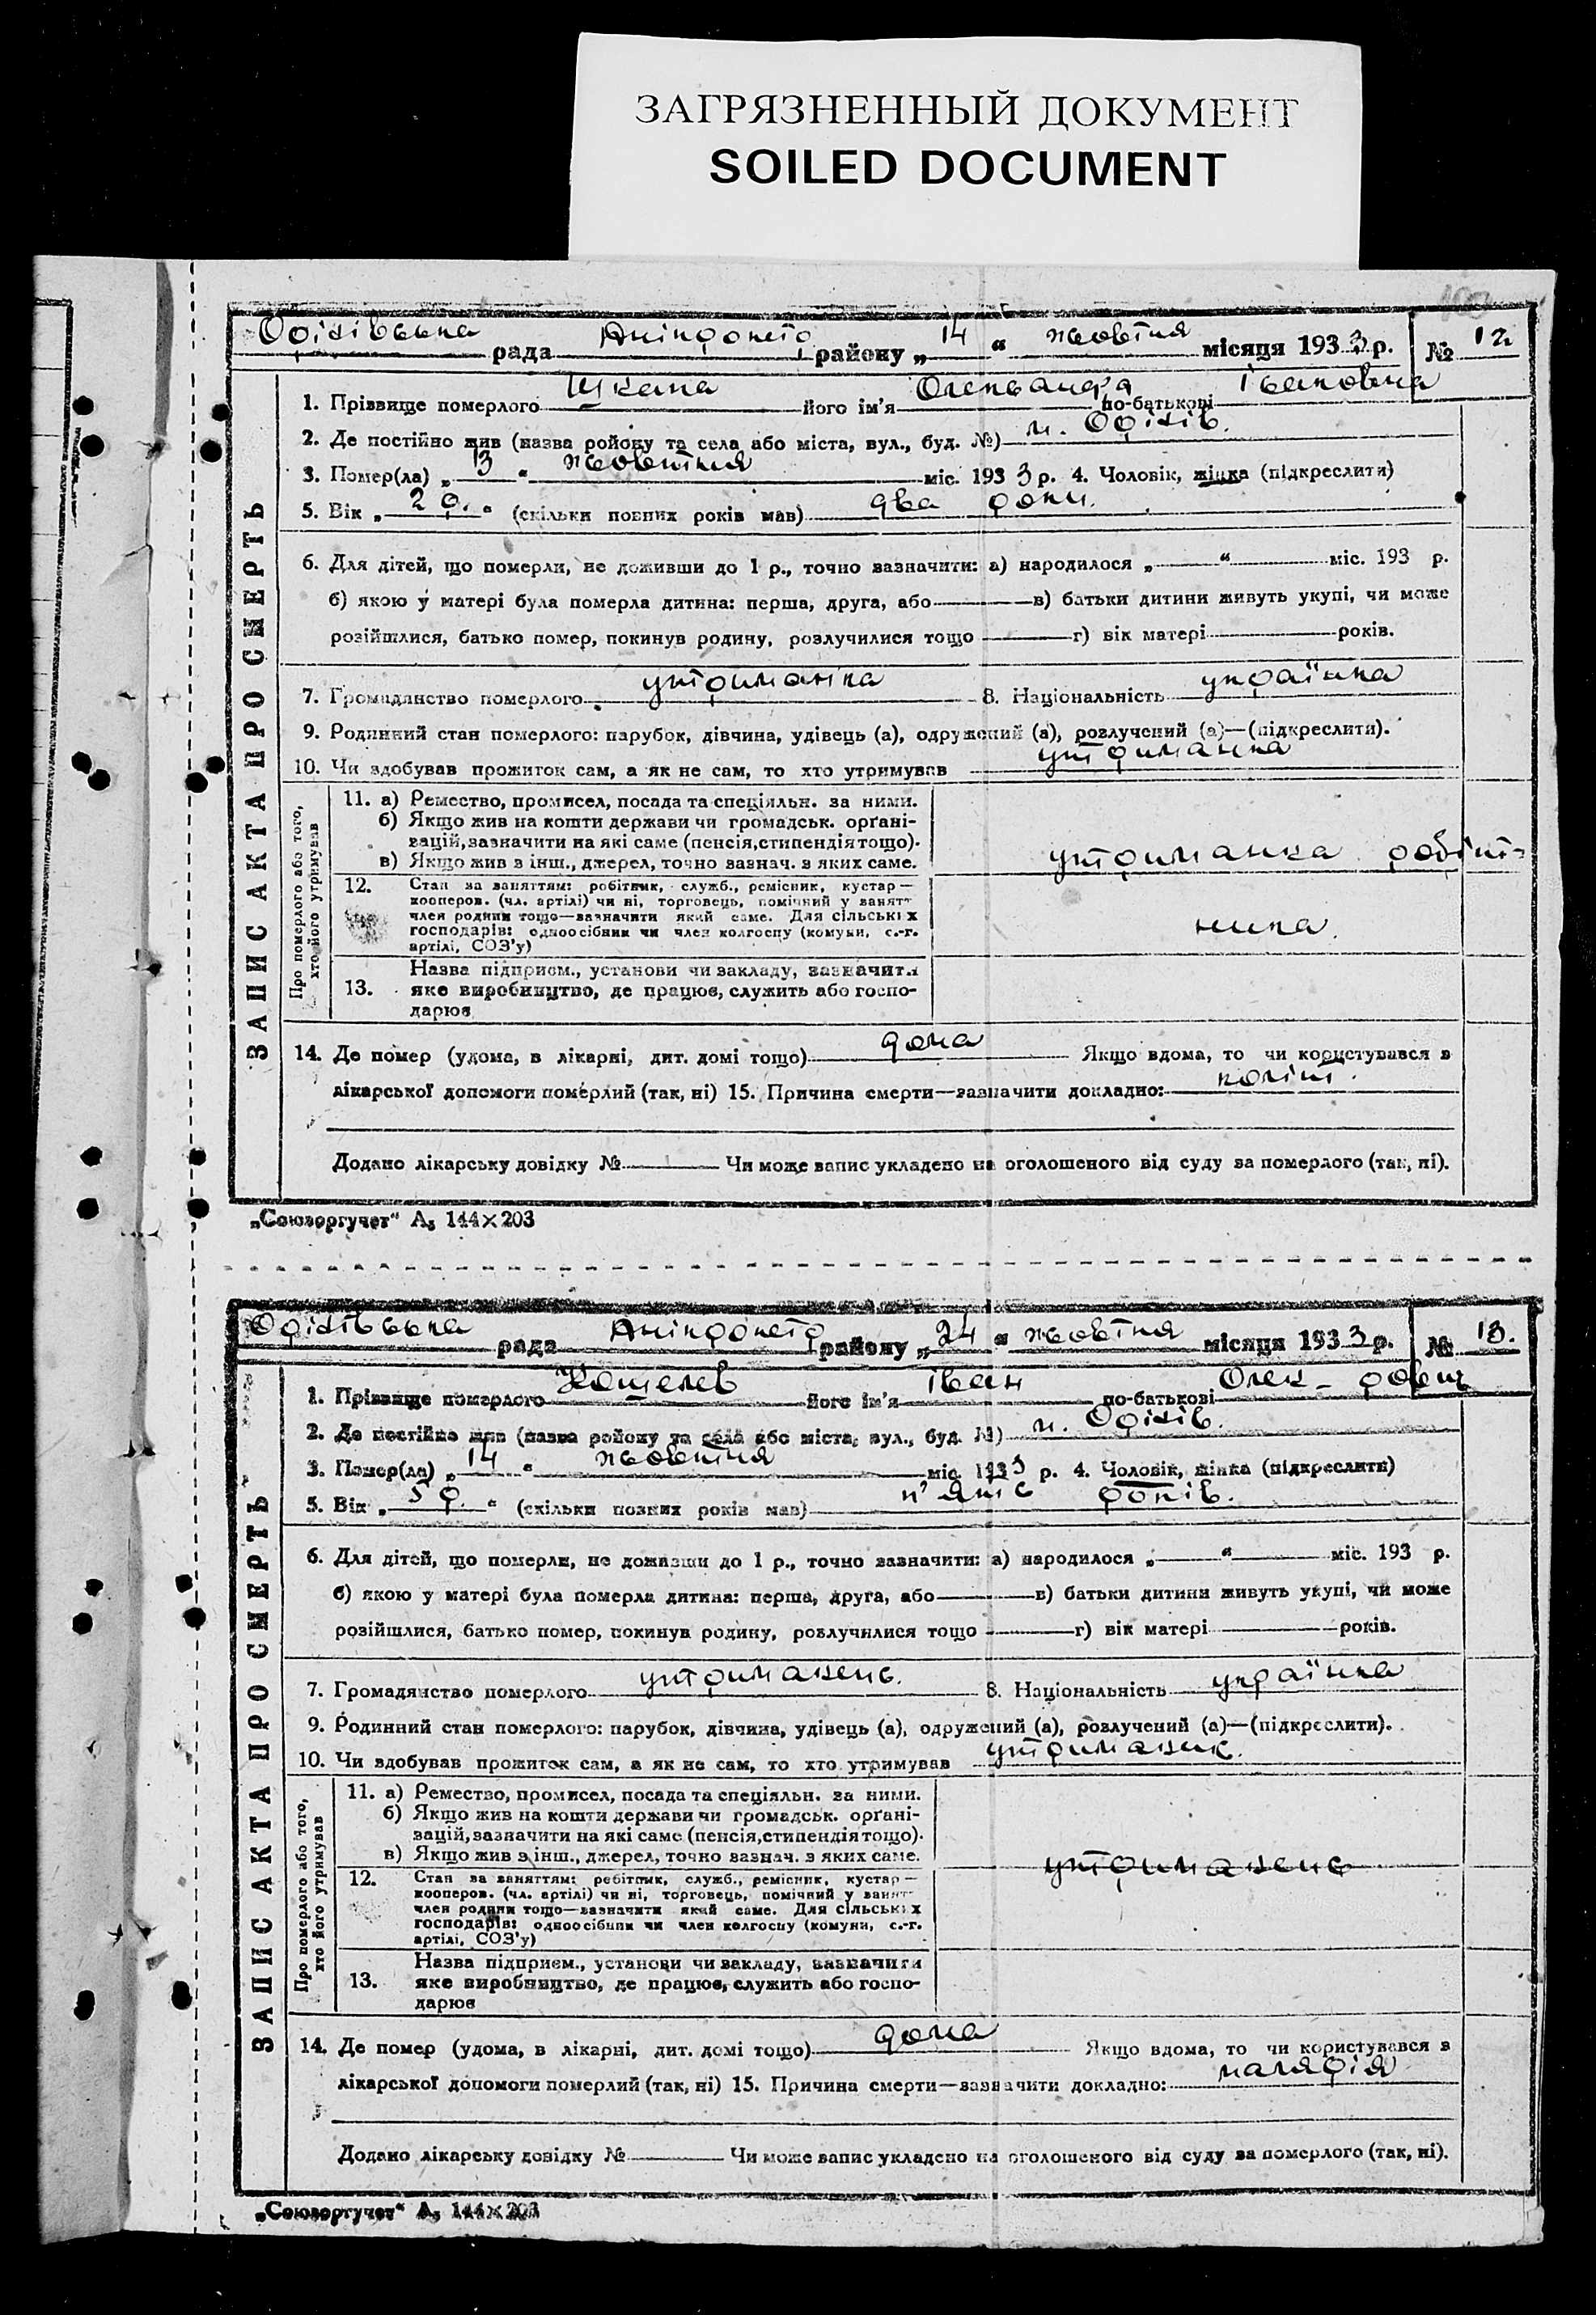 ЗАГРЯЗНЕННЫЙ ДОКУМЕНТ
SOILED DOCUMENT
Оріхівська рада району „ 14 “ жовтня місяця 1933 р. № 12
ЗАПИС АКТА ПРО СМЕРТЬ
1. Прізвище померлого його ім'я Олександра по-батькові Івановна
2. Де постійно жив (назва району та села або міста, вул., буд. №) м. Оріхів.
3. Помер(ла) „ 13 “ жовтня міс. 1933 р. 4. Чоловік, жінка (підкреслити)
5. Вік „ 2 р. “ (скільки повних років мав) два роки.
6. Для дітей, що померли, не доживши до 1 р., точно зазначити: а) народилося „ “ міс. 193 р.
б) якою у матері була померла дитина: перша, друга, або в) батьки дитини живуть укупі, чи може
розійшлися, батько помер, покинув родину, розлучилися тощо г) вік матері років.
7. Громадянство померлого утриманка 8. Національність українка
9. Родинний стан померлого: парубок, дівчина, удівець (а), одружений (а), розлучений (а)—(підкреслити).
10. Чи здобував прожиток сам, а як не сам, то хто утримував утриманка
Про померлого або того, хто його утримував
11. а) Ремество, промисел, посада та спеціяльн. за ними.
б) Якщо жив на кошти держави чи громадськ. орґані-
зацій, зазначити на які саме (пенсія, стипендія тощо).
в) Якщо жив з інш., джерел, точно зазнач. з яких саме. утриманка робіт-
12. Стан за заняттям: робітник, служб., ремісник, кустар —
кооперов. (чл. артілі) чи ні, торговець, помічний у занятт
член родини тощо—зазначити який саме. Для сільських ника.
господарів: одноосібник чи член колгоспу (комуни, с.-г.
артілі, СОЗ'у)
Назва підприєм., установи чи закладу, зазначити
13. яке виробництво, де працює, служить або госпо-
дарює
14. Де помер (удома, в лікарні, дит. домі тощо) дома Якщо вдома, то чи користувався з
лікарської допомоги померлий (так, ні) 15. Причина смерти—зазначити докладно: коліт.
Додано лікарську довідку № Чи може запис укладено на оголошеного від суду за померлого (так, ні).
„Союзоргучет“ А₅ 144×203
Оріхівська рада району „ 24 “ жовтня місяця 1933 р. № 13.
ЗАПИС АКТА ПРО СМЕРТЬ
1. Прізвище померлого Кошелев його ім'я Іван по-батькові
2. Де постійно жив (назва району та села або міста, вул., буд. №) м. Оріхів.
3. Помер(ла) „ 14 “ жовтня міс. 1933 р. 4. Чоловік, жінка (підкреслити)
5. Вік „ 5 р. “ (скільки повних років мав) п'ять років.
6. Для дітей, що померли, не доживши до 1 р., точно зазначити: а) народилося „ “ міс. 193 р.
б) якою у матері була померла дитина: перша, друга, або в) батьки дитини живуть укупі, чи може
розійшлися, батько помер, покинув родину, розлучилися тощо г) вік матері років.
7. Громадянство померлого утриманець. 8. Національність українка
9. Родинний стан померлого: парубок, дівчина, удівець (а), одружений (а), розлучений (а)—(підкреслити).
10. Чи здобував прожиток сам, а як не сам, то хто утримував
Про померлого або того, хто його утримував
11. а) Ремество, промисел, посада та спеціяльн. за ними.
б) Якщо жив на кошти держави чи громадськ. орґані-
зацій, зазначити на які саме (пенсія, стипендія тощо).
в) Якщо жив з інш., джерел, точно зазнач. з яких саме. утриманець
12. Стан за заняттям: робітник, служб., ремісник, кустар —
кооперов. (чл. артілі) чи ні, торговець, помічний у занятт
член родини тощо—зазначити який саме. Для сільських
господарів: одноосібник чи член колгоспу (комуни, с.-г.
артілі, СОЗ'у)
Назва підприєм., установи чи закладу, зазначити
13. яке виробництво, де працює, служить або госпо-
дарює
14. Де помер (удома, в лікарні, дит. домі тощо) дома Якщо вдома, то чи користувався з
лікарської допомоги померлий (так, ні) 15. Причина смерти—зазначити докладно: малярія
Додано лікарську довідку № Чи може запис укладено на оголошеного від суду за померлого (так, ні).
„Союзоргучет“ А₅ 144×203